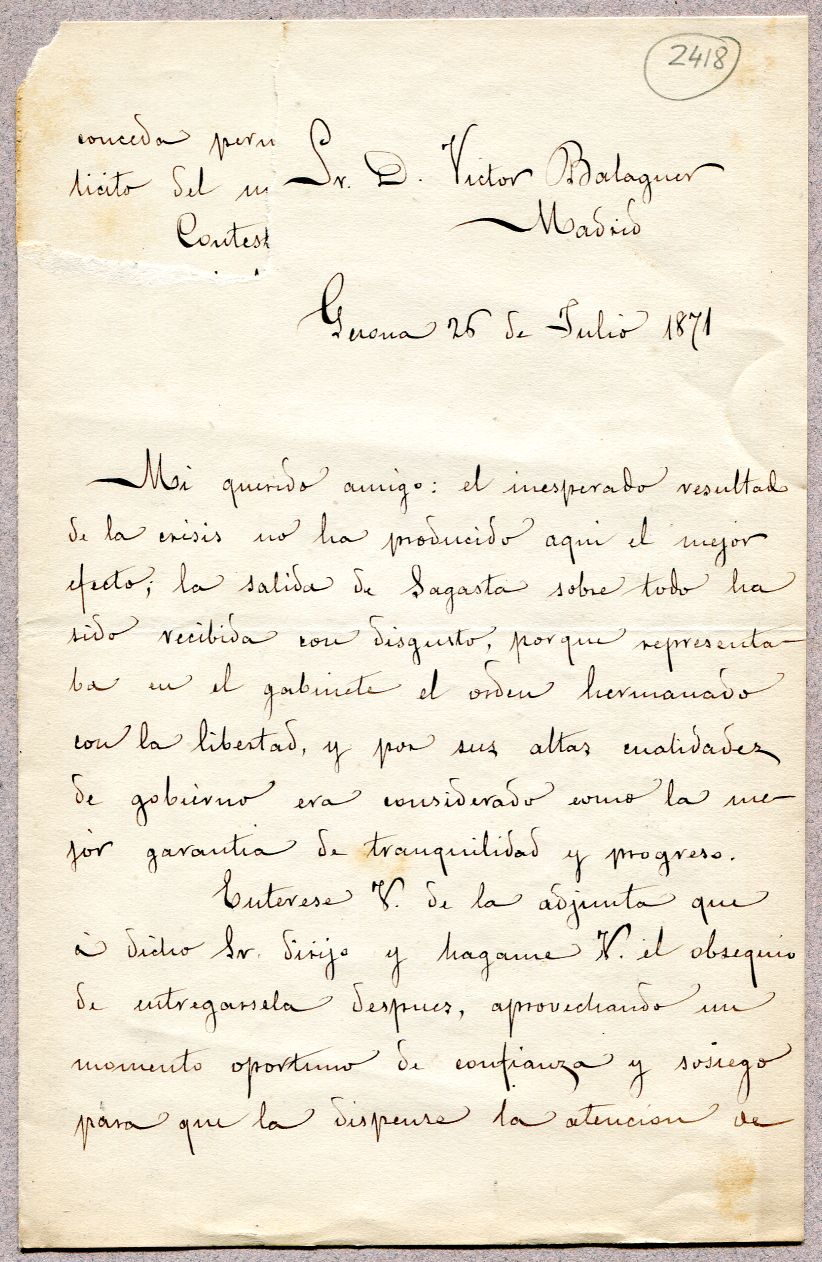 2418
conceda perm
licito del m
Contest
Sr. D. Victor Balaguer
Madrid
Gerona 26 de Julio 1871
Mi querido amigo: el inesperado resultado
de la crisis no ha producido aqui el mejor
efecto; la salida de Sagasta sobre todo ha
sido recibida con disgusto, porque representa-
ba en el gabinete el orden hermanado
con la libertad, y por sus altas cualidades
de gobierno era considerado como la me-
jor garantia de tranquilidad y progreso.
Enterese V. de la adjunta que
à dicho Sr. dirijo y hagame V. el obsequio
de entregarsela despues, aprovechando un
momento oportuno de confianza y sosiego
para que la dispense la atencion de